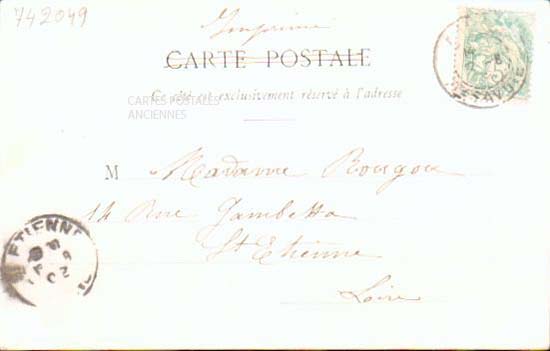 742049
Imprimé
CARTE POSTALE
Ce côté est exclusivement réservé à l'adresse
CARTES POSTALES
ANCIENNES
M Madame Bougou
14 Rue Gambetta
St Etienne
Loire
ETIENNE
SAVOIE